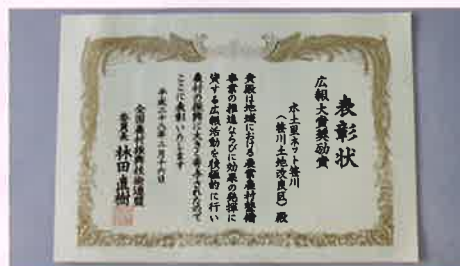 表彰状
広報大賞奨励賞
水土里ネット笹川
(笹川土地改良区)殿
貴殿は地域における農業農村整備
事業の推進ならびに効果の発揮に
資する広報活動を積極的に行い
農村の振興に大きく寄与されたので
ここに表彰いたします
平成二十八年二月十六日
全国農村振興技術連盟
委員長 林田直樹